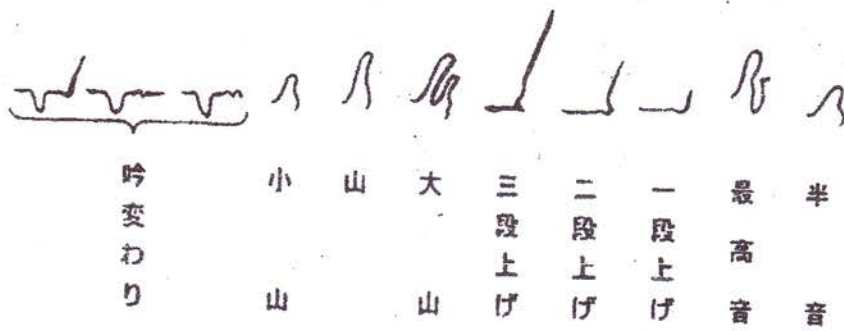 半音
最高音
一段上げ
二段上げ
三段上げ
大山
山
小山
吟変わり